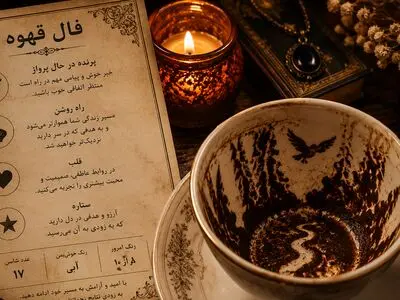 فال قهوه
پرنده در حال پرواز
خبر خوش و پیامی مهم در راه است
منتظر اتفاقی خوب باشید.
راه روشن
مسیر زندگی شما هموارتر می‌شود
و به هدفی که در سر دارید
نزدیک‌تر خواهید شد.
قلب
در روابط عاطفی، صمیمیت و
محبت بیشتری را تجربه می‌کنید.
ستاره
آرزو و هدفی در دل دارید
که به زودی به آن می‌رسید.
عدد شانس
۱۷
رنگ خوش‌یمن
آبی
رنگ امروز
با امید و آرامش به مسیر خود ادامه دهید